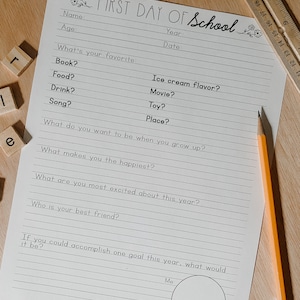 FIRST DAY OF School
Name
Year
Age
Date
What's your favorite
Book?
Food?
Ice cream flavor?
Drink?
Movie?
Song?
Toy?
Place?
What do you want to be when you grow up?
What makes you the happiest?
What are you most excited about this year?
Who is your best friend?
If you could accomplish one goal this year, what would
it be?
Me
r
l
e